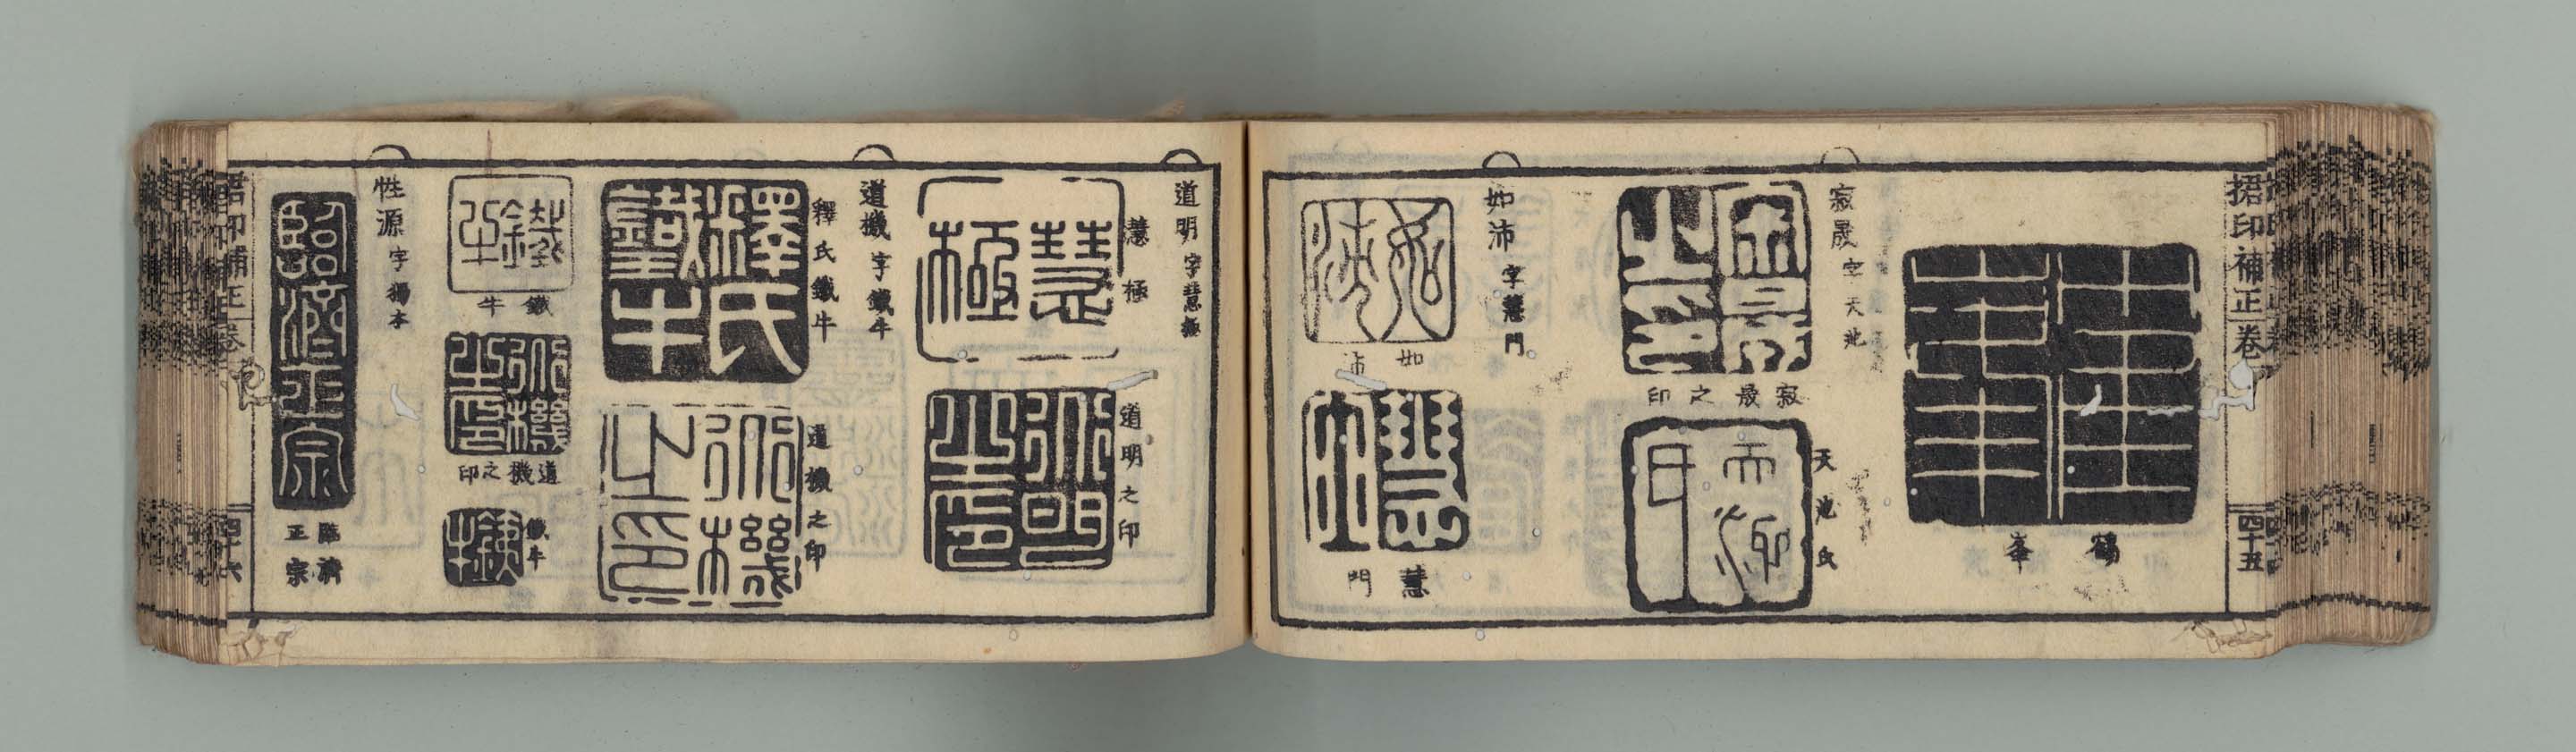 捃印補正 卷
四十五
鶴峯
寂晟 字天池
寂晟之印
天池氏
如沛 字慧門
如沛
慧門
道明 字慧極
慧極
道明之印
道機 字鐵牛
釋氏鐵牛
道機之印
鐵牛
道機之印
鐵牛
性源 字獨本
臨濟正宗
捃印補正 卷
四十六